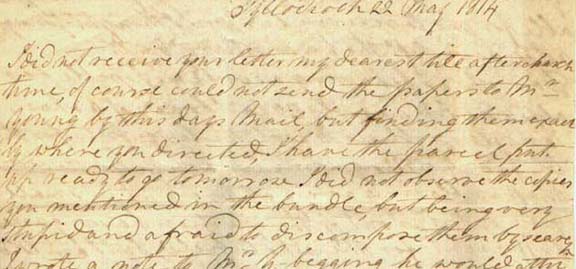 22 May 1814
I did not receive your letter my dearest till after church
time, of course could not send the papers to Mr
Young by this days Mail, but finding them exact
ly where you directed, I have the parcel put
up ready to go tomorrow I did not observe the copies
you mentioned in the bundle, but being very
stupid and afraid to discompose them by
I wrote a note to Mr Y begging he would